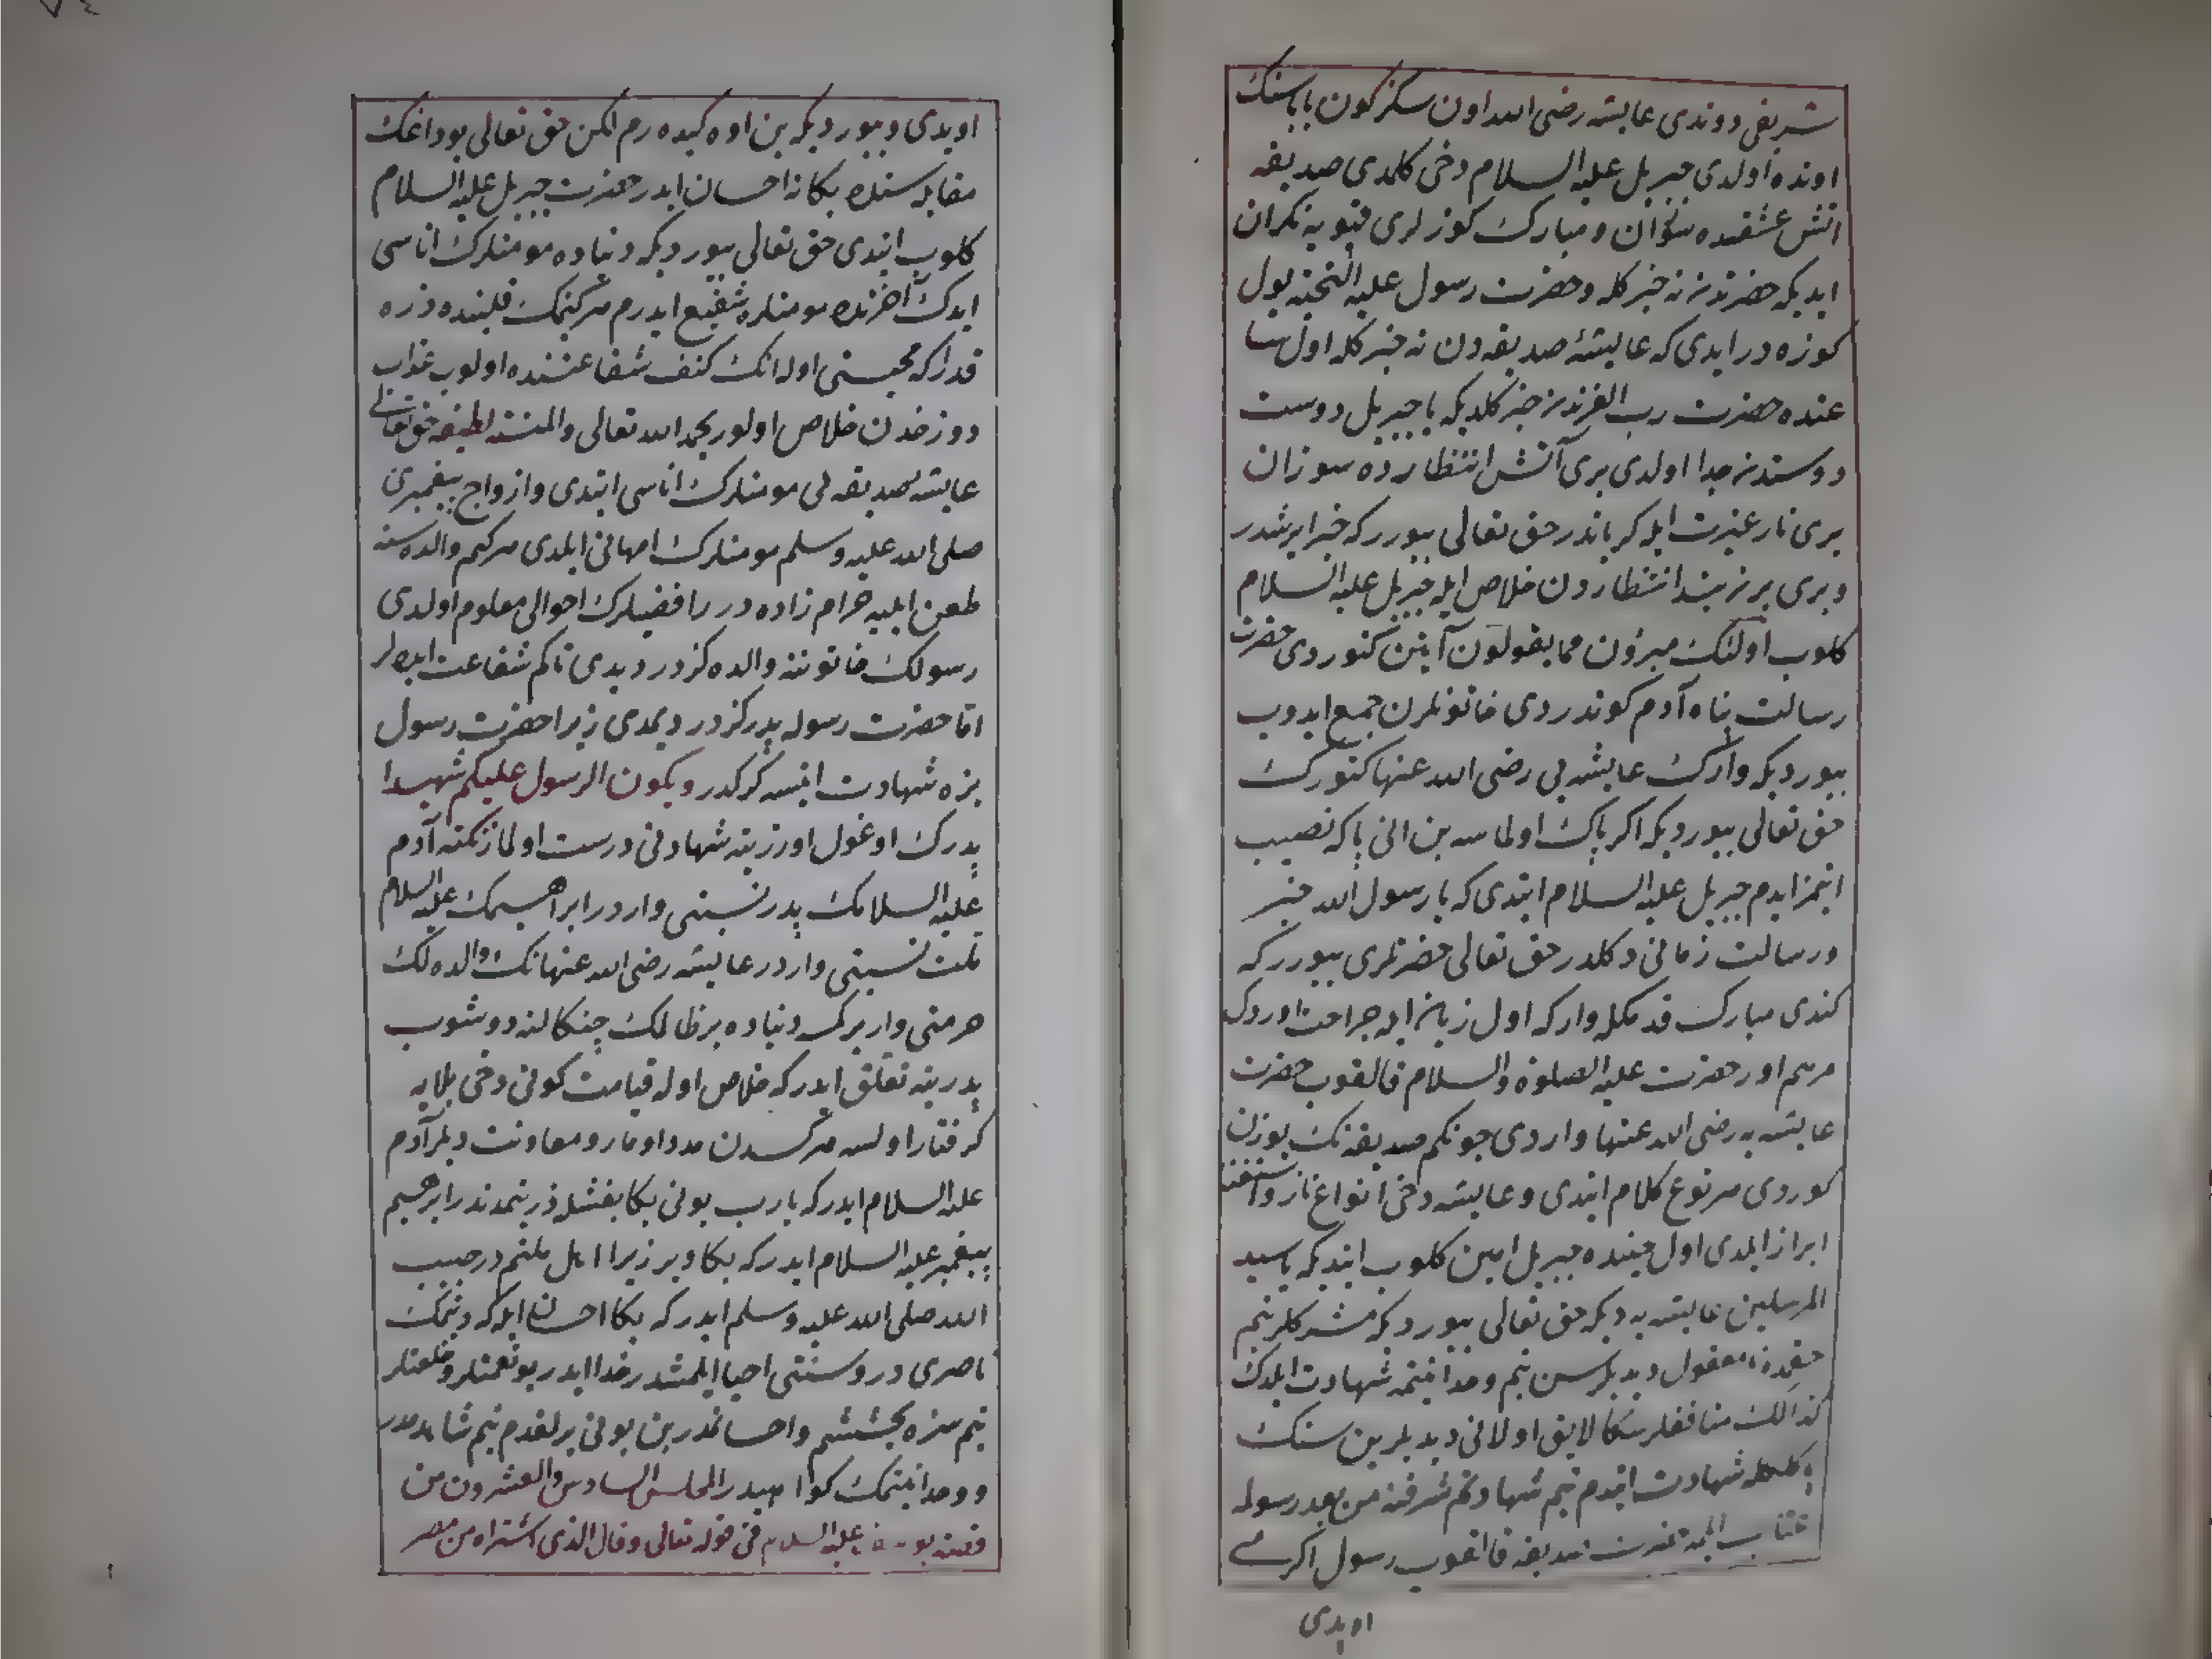 شریفی دوندی عایشه رضی الله اون سکز کون باباسنک
اونده اولدی جبریل علیه السلام دخی کلمدی صدیقه
اتش عشقنده نکران و مبارک کوزلری قپویه نکران
ایدیکه حضرتدن نه خبر کله و حضرت رسول علیه التحیه یول
کوزه در ایدی که عایشهٔ صدیقه دن نه خبر کله اول
عنده حضرت رب العزتدن خبر کلدیکه یا جبریل دوست
دوستدن جدا اولدی بری آتش انتظارده سوزان
بری نار غیرت ایله کریاندر حق تعالی بیوررکه خبر ایرشدر
و بری برینه انتظاردن خلاص ایله جبریل علیه السلام
کلوب اولئک مبرؤن مما یقولون آیتن کتوردی حضرت
رسالت پناه آدم کوندردی خاتونلرن جمع ایدوب
بیوردیکه وارک عایشه یی رضی الله عنها کتورک
حق تعالی بیوردیکه اکر پاک اولماسه بن انی پاکه نصیب
ایتمز ایدم جبریل علیه السلام ایتدی که یا رسول الله خبر
و رسالت زمانی دکلدر حق تعالی حضرتلری بیوررکه
کندی مبارک قدمکله وار که اول زبان ایله جراحت اوردک
مرهم اور حضرت علیه الصلوة والسلام قالقوب حضرت
عایشه یه رضی الله عنها واردی چونکم صدیقه نک یوزن
کوردی هر نوع کلام ایتدی و عایشه دخی انواع ناز و استغنا
ابراز ایلدی اول حینده جبریل امین کلوب ایتدیکه یا سید
المرسلین عایشه یه دیکه حق تعالی بیوردیکه مشرکلر بنم
حقمده نامعقول دیدیلر سن بنم وحدانیتمه شهادت ایلدک
کذالک منافقلر سکا لایق اولانی دیدیلر بن سنک
پاکلکه شهادت ایتدم بنم شهادتم شرفنه من بعد رسوله
عتاب ایلمه حضرت صدیقه قالقوب رسول اکرمی
اوپدی
اوپدی و بیوردیکه بن اوه کیده رم لکن حق تعالی بو داغک
مقابله سنده بکا نه احسان ایدر حضرت جبریل علیه السلام
کلوب ایتدی حق تعالی بیوردیکه دنیاده مومنلرک اناسی
ایدک آخرتده مومنلره شفیع ایدرم هر کیمک قلبنده ذره
قدرکه محبتی اوله انک کنف شفاعتنده اولوب عذاب
دوزخدن خلاص اولور بحمد الله تعالی والمنه لطیفه حق تعالی
عایشه صدیقه یی مومنلرک اناسی ایتدی و ازواج پیغمبری
صلی الله علیه وسلم مومنلرک امهاتی ایلدی هر کیم والده سنه
طعن ایلیه حرام زاده در رافضیلرک احوالی معلوم اولدی
رسولک خاتوننه والده کزدر دیدی تاکم شفاعت ایده لر
اما حضرت رسوله پدرکزدر دیمدی زیرا حضرت رسول
بزه شهادت ایتسه کرکدر و یکون الرسول علیکم شهیدا
پدرک اوغول اوزرینه شهادتی درست اولماز نکته آدم
علیه السلامک پدر نسبتی واردر ابراهیمک علیه السلام
ملت نسبتی واردر عایشه رضی الله عنهانک والده لک
حرمتی وار برکمسه دنیاده بر ظالمک چنکالنه دوشوب
پدرینه تعلق ایدرکه خلاص اوله قیامت کونی دخی بلایه
کرفتار اولسه هر کسدن مدد اومار و معاونت دیلر آدم
علیه السلام ایدرکه یا رب بونی بکا بغشله ذریتمدندر ابرهیم
پیغمبر علیه السلام ایدرکه بکا ویر زیرا اهل ملتمدر حبیب
الله صلی الله علیه وسلم ایدرکه بکا احسان ایله که دینمک
ناصری در و سنتمی احیا ایلمشدر خدا ایدر بو نعمتلر و خلعتلر
بنم سزه بخششم و احسانمدر بن بونی یرلغدم بنم شاهدمدر
و وحدانیتمک کواهیدر المجلس السادس والعشرون من
قصة یوسف علیه السلام فی قوله تعالی وقال الذی اشتراه من مصر